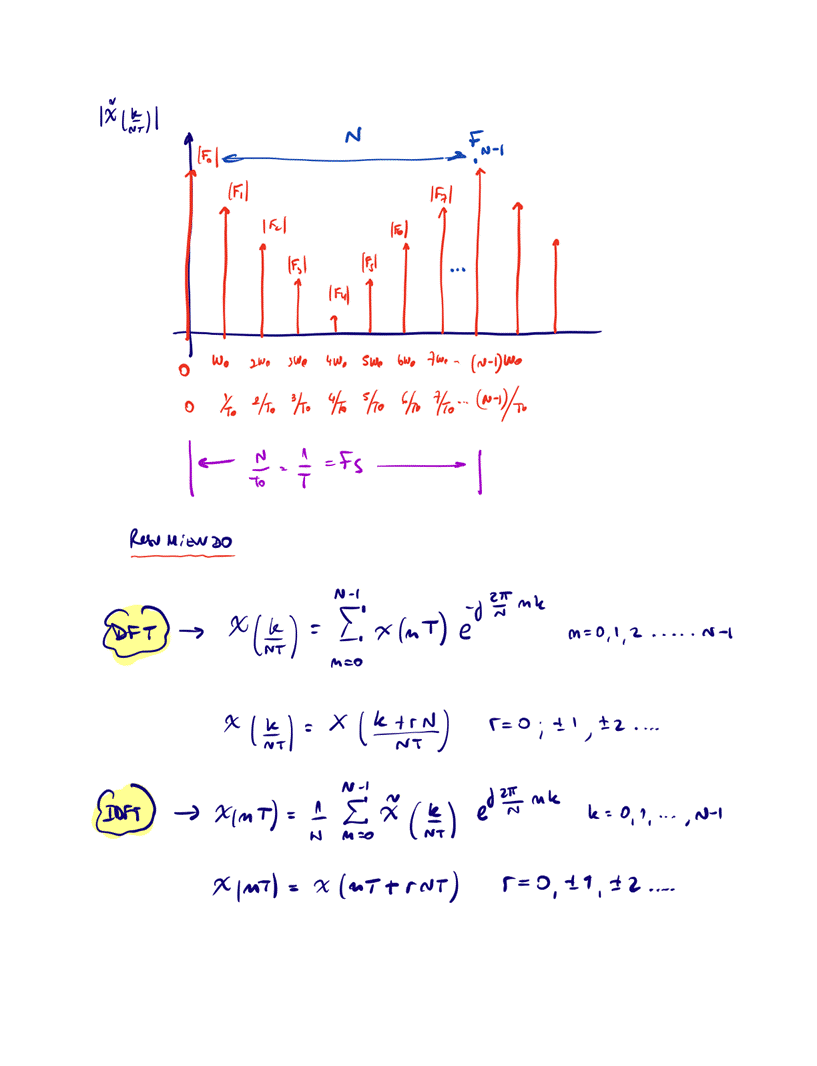 |X̃(k/NT)|
N F_{N-1}
|F₀|
|F₁| |F₇|
|F₂| |F₆|
|F₃| |F₅|
|F₄| ...
0 W₀ 2W₀ 3W₀ 4W₀ 5W₀ 6W₀ 7W₀ .. (N-1)W₀
0 1/T₀ 2/T₀ 3/T₀ 4/T₀ 5/T₀ 6/T₀ 7/T₀ ... (N-1)/T₀
N/T₀ = 1/T = FS
RESUMIENDO
DFT → X(k/NT) = Σ_{n=0}^{N-1} x(nT) e^{-j 2π/N nk} n=0,1,2 ..... N-1
X(k/NT) = X((k+rN)/NT) r=0; ±1, ±2 ....
IDFT → x(nT) = 1/N Σ_{n=0}^{N-1} X̃(k/NT) e^{j 2π/N nk} k=0,1,...,N-1
x(nT) = x(nT+rNT) r=0, ±1, ±2 ....